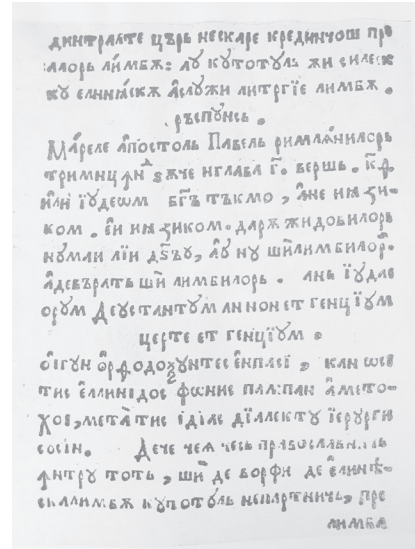 динтралте църъ нескаре крединчош про
алорь лимбж: лꙋ кꙋтотꙋль жи силеск
кꙋ елиныскж аслꙋжи литргїе лимбж.
ръспꙋнсь.
Мареле апостоль Павель римлѧнилорь
тримицѫн зѫче иглава г҃. вершь. к҃ѳ
или їꙋдеѡм бг҃ъ тъкмо, ане инѕи-
ком. еи инѕиком. дарж жидовилорь
нꙋмаи
адевърать ши лимбилорь. ань їꙋдае
орꙋм Деꙋс тантꙋм ан нон ет генцїꙋм
церте ет генцїꙋм.
ѻігꙋн ѻрѳодоѯꙋнтес енплеї, кан ѡсв
тис еллинідос фѡние паꙗ: пан амето-
хоѵ, мета тис ідїас дїалектꙋ їерꙋрги
сосін. Дече чеꙗ чесь православникь
ѫнтрꙋ тоть, ши де ворфи де елинѣ-
скалимбж кꙋпотꙋль непартничь, пре
лимба